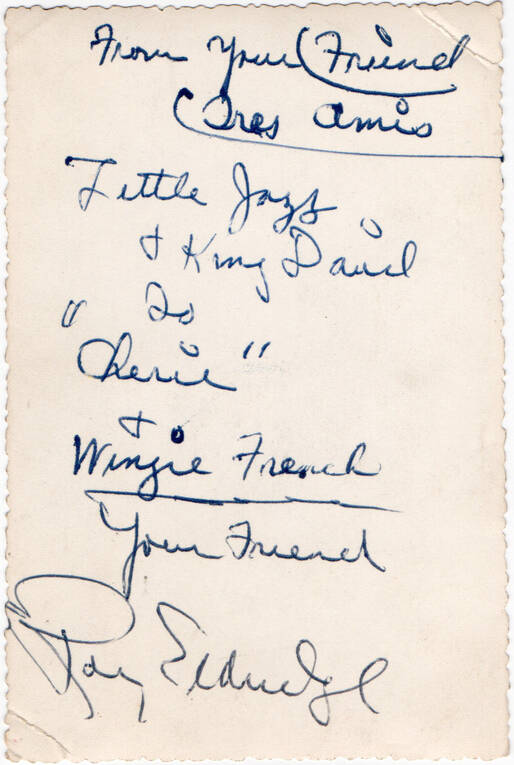 From Your Friend
Tres Amis
Little Jazz
+ King David
" To
Cherie "
+ to
Wingie French
Your Friend
Roy Eldridge